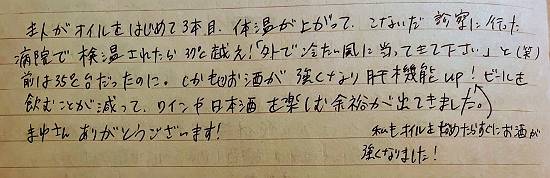 まんがオイルをはじめて3本目、体温が上がって、こないだ診察に行った
病院で検温されたら37℃越え!「外で冷たい風に当ってきて下さい」と(笑)
前は35℃台だったのに。しかもお酒が強くなり肝機能up!ビールを
飲むことが減って、ワインや日本酒を楽しむ余裕が出てきました。
まゆさんありがとうございます!
私もオイルを始めたらすぐにお酒が
強くなりました!